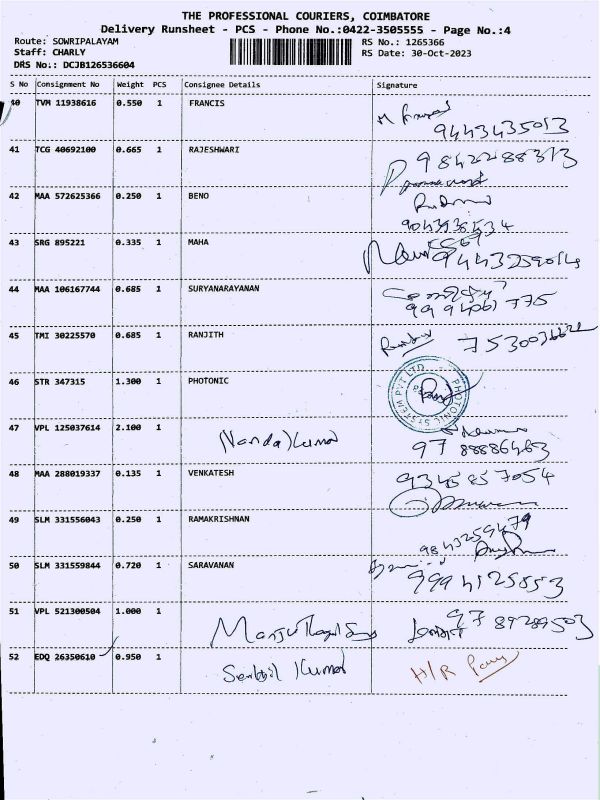 THE PROFESSIONAL COURIERS, COIMBATORE
Delivery Runsheet - PCS - Phone No.:0422-3505555 - Page No.:4
Route: SOWRIPALAYAM
Staff: CHARLY
DRS No.: DCJB126536604
RS No.: 1265366
RS Date: 30-Oct-2023
S No Consignment No Weight PCS Consignee Details Signature
40 TVM 11938616 0.550 1 FRANCIS
9443435013
41 TCG 40692100 0.665 1 RAJESHWARI
9842288313
42 MAA 572625366 0.250 1 BENO
43 SRG 895221 0.335 1 MAHA
9443259014
44 MAA 106167744 0.685 1 SURYANARAYANAN
45 TMI 30225570 0.685 1 RANJITH
46 STR 347315 1.300 1 PHOTONIC
PHOTONIC SYSTEM PVT LTD
47 VPL 125037614 2.100 1 Nanda Kumar
97 88886463
48 MAA 288019337 0.135 1 VENKATESH
9345857054
49 SLM 331556043 0.250 1 RAMAKRISHNAN
9843259479
50 SLM 331559844 0.720 1 SARAVANAN
9994125853
51 VPL 521300504 1.000 1
97 89289503
52 EDQ 26350610 0.950 1 Senthil Kumar
H/R